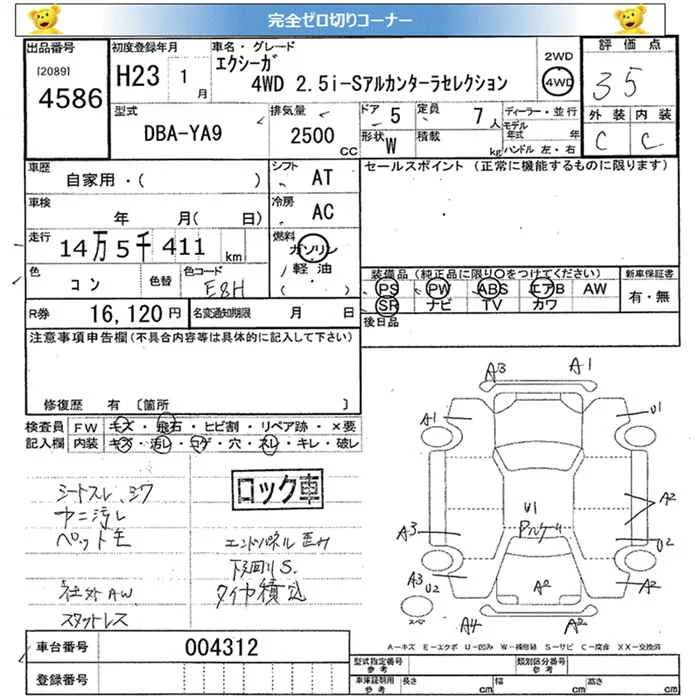 完全ゼロ切りコーナー
出品番号
[2089]
4586
初度登録年月
H23 1 月
車名・グレード
エクシーガ
4WD 2.5i-Sアルカンターラセレクション
2WD
4WD
評価点
35
外装 内装
C C
型式
DBA-YA9
排気量
2500 CC
ドア 5
定員 7 人
形状 W
積載 kg
ディーラー・並行
モデル年式 年
ハンドル 左・右
車歴
自家用・( )
シフト
AT
セールスポイント (正常に機能するものに限ります)
車検
年 月( 日)
冷房
AC
走行
14万5千411 km
燃料
ガソリン
軽油
・
( )
色
コン
色替
色コード
E8H
装備品 (純正品に限り○をつけてください)
PS PW ABS エアB AW
SR ナビ TV カワ
新車保証書
有・無
R券 16,120 円
名変通知期限 月 日
後日品
注意事項申告欄(不具合内容等は具体的に記入して下さい)
修復歴 有 〔箇所 〕
検査員 FW キズ・飛石・ヒビ割・リペア跡・×要
記入欄 内装 キズ・汚レ・コゲ・穴・スレ・キレ・破レ
シートスレ、シワ
ヤニ汚レ
ペット毛
社外AW
スタットレス
ロック車
エンドパネル歪み
下廻りS.
タイヤ積込
A3 A1
A1 U1
U1
A2
A3 U2
A3 U2 A2 A2
スペ
A4 A2
A-キズ E-エクボ U-凹み W-補修跡 S-サビ C-腐食 XX-交換済
車台番号 004312
登録番号
型式指定番号 参考
類別区分番号 参考
車庫証明用 参考
長さ cm 幅 cm 高さ cm